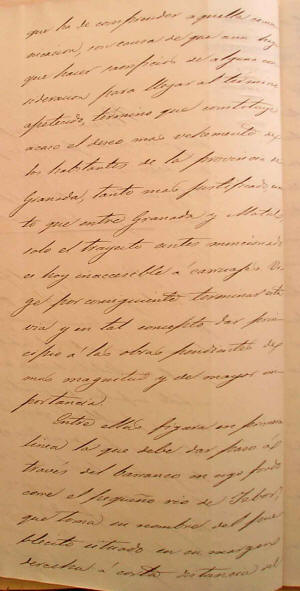 que ha de comprender aquella comu
nicacion, son causa de que aun hay
que hacer sacrificios de alguna con
sideracion para llegar al término
apetecido, término que constituye
acaso el deseo mas vehemente de
los habitantes de la provincia de
Granada, tanto mas justificado, cuan
to que entre Granada y Motril
solo el trayecto antes mencionado
es hoy inaccesible á carruajes. Ur
ge por consiguiente terminar esta
via y en tal concepto dar prin
cipio á las obras pendientes de
mas magnitud y de mayor im
portancia.
Entre ellas figura en primera
linea la que debe dar paso al
través del barranco en cuyo fondo
corre el pequeño rio de Tablate,
que toma su nombre del pue
blecito situado en su margen
derecha á corta distancia del